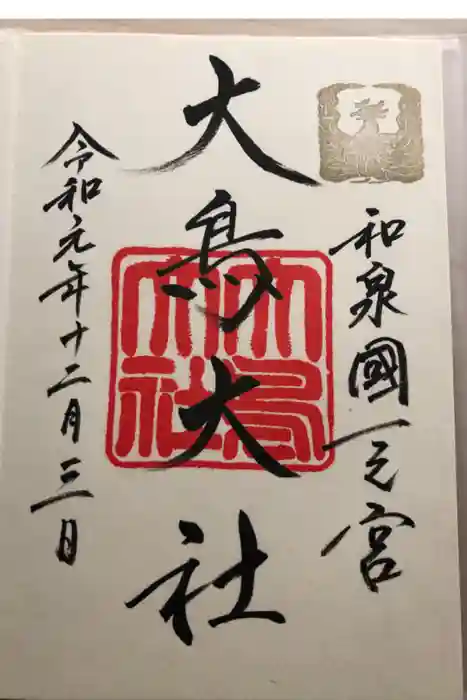 和泉國一之宮
大鳥大社
令和元年十二月三日
大鳥大社